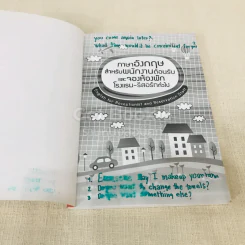 you come again later?
What time would be convenient for you
ภาษาอังกฤษ
สำหรับพนักงานต้อนรับ
และจองห้องพัก
โรงแรม-รีสอร์ททั่วไป
English for Receptionist and Reservation Clerk
May I makeup your room
Do you want to change the towels?
Do you want something else?